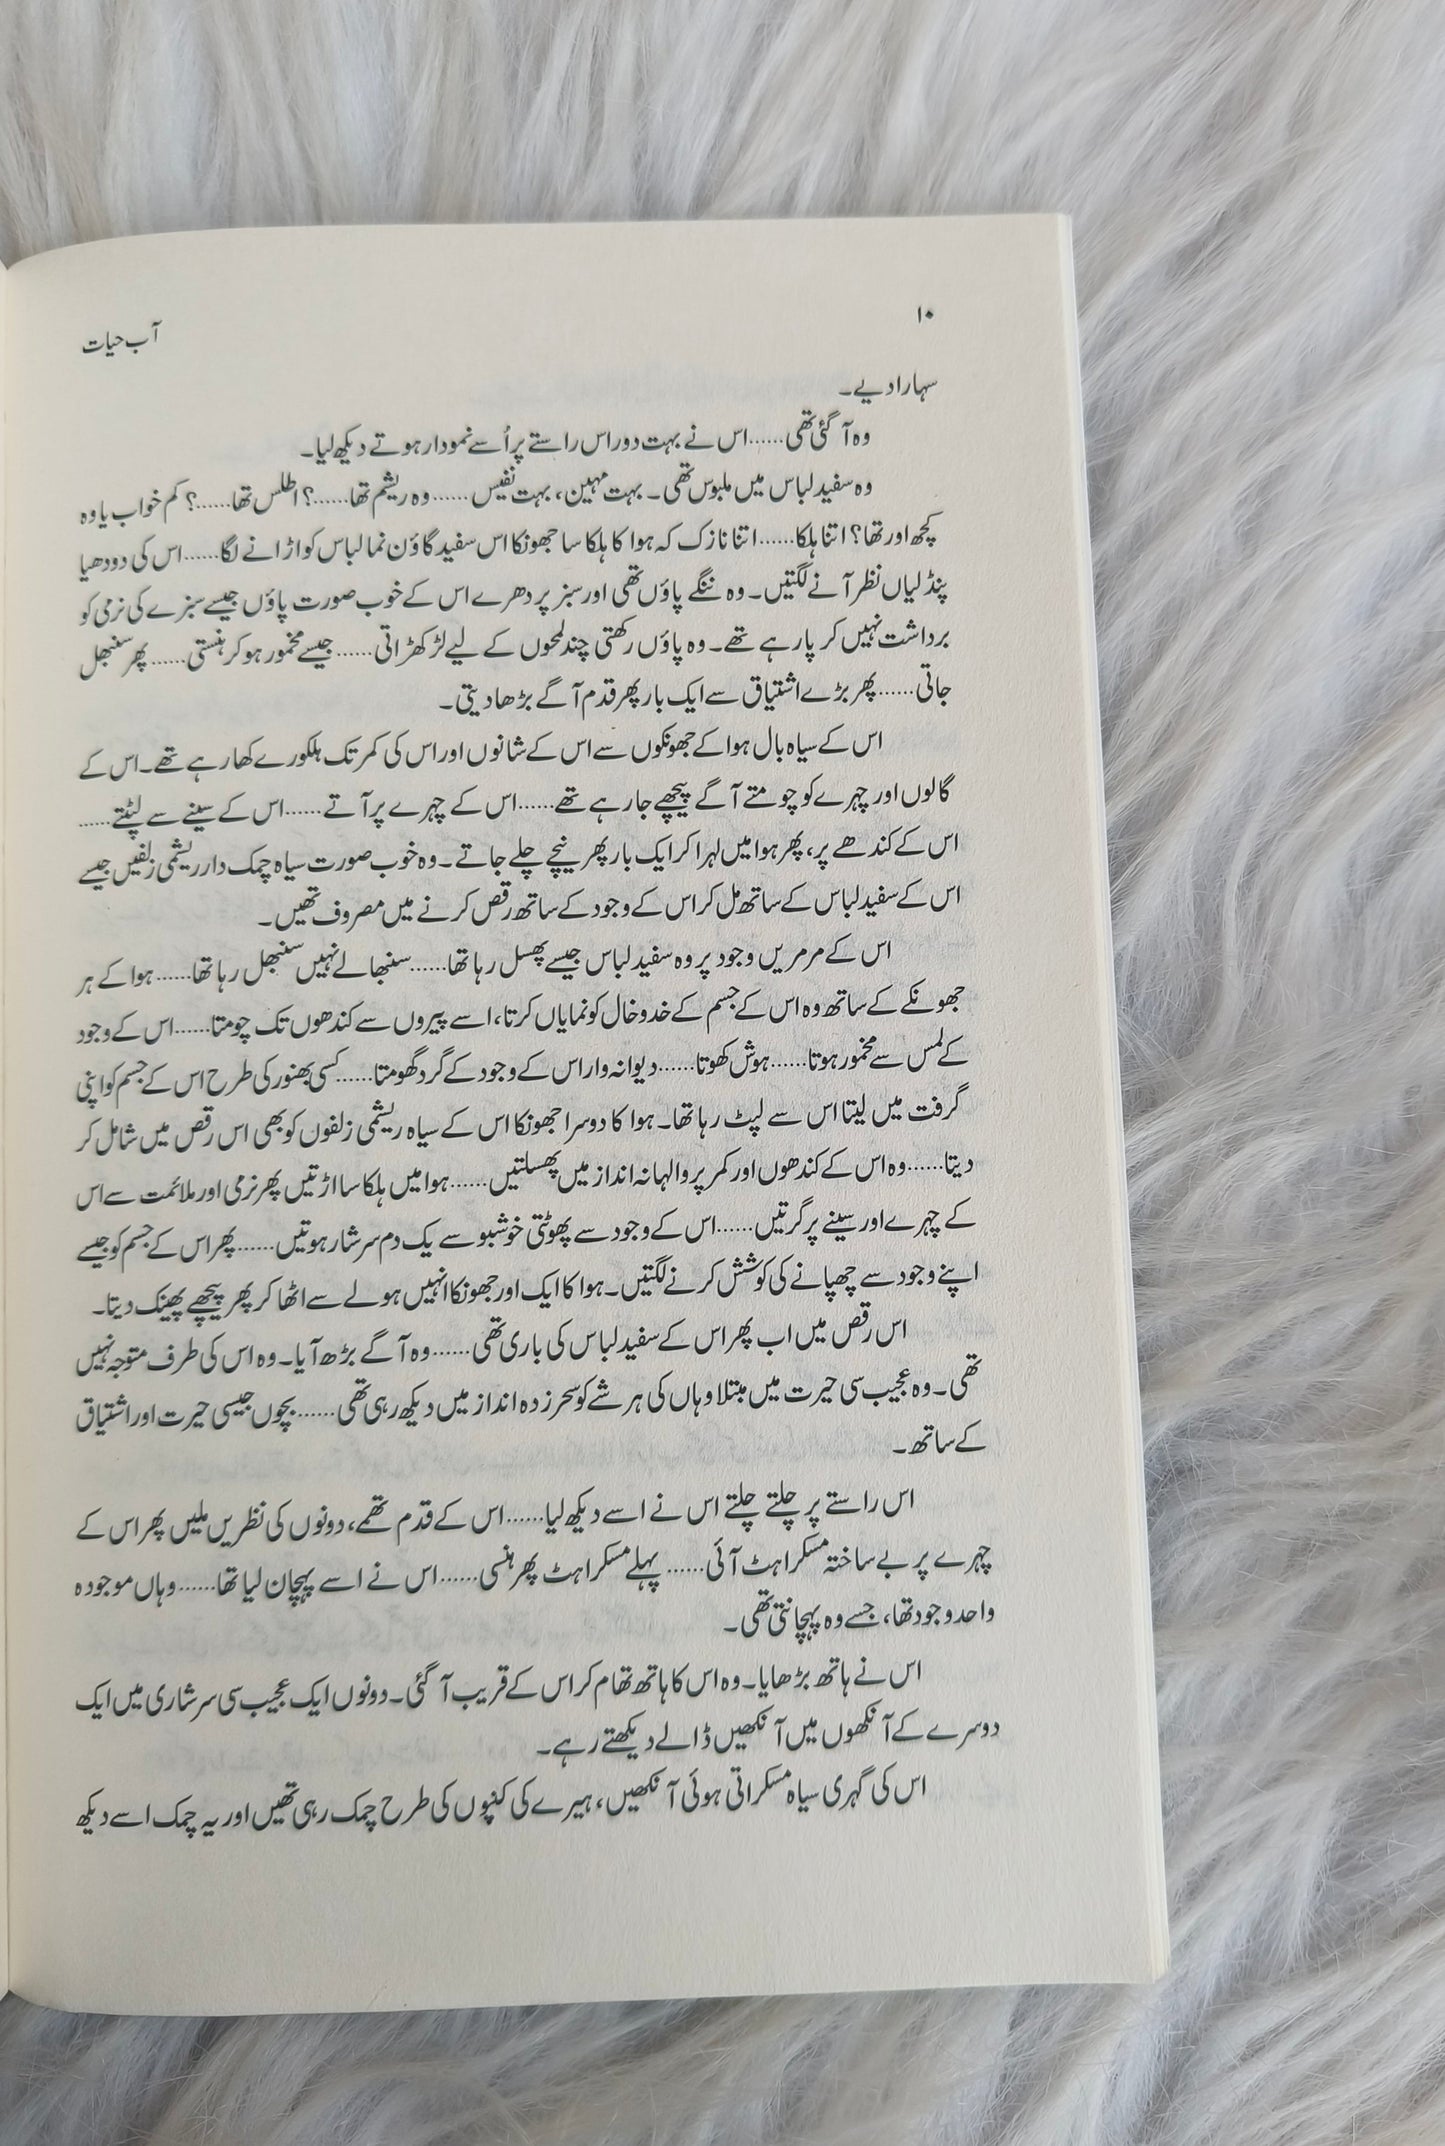 ۱۰
آب حیات
سہارا دیے۔
وہ آ گئی تھی......اس نے بہت دور اس راستے پر اُسے نمودار ہوتے دیکھ لیا۔
وہ سفید لباس میں ملبوس تھی۔ بہت مہین، بہت نفیس......وہ ریشم تھا......؟ اطلس تھا......؟ کم خواب یا وہ
کچھ اور تھا؟ اتنا ہلکا......اتنا نازک کہ ہوا کا ہلکا سا جھونکا اس سفید گاؤن نما لباس کو اڑانے لگا......اس کی دودھیا
پنڈلیاں نظر آنے لگتیں۔ وہ ننگے پاؤں تھی اور سبز پر دھرے اس کے خوب صورت پاؤں جیسے سبزے کی نرمی کو
برداشت نہیں کر پا رہے تھے۔ وہ پاؤں رکھتی چند لمحوں کے لیے لڑکھڑاتی......جیسے مخمور ہو کر ہنستی......پھر سنبھل
جاتی......پھر بڑے اشتیاق سے ایک بار پھر قدم آگے بڑھا دیتی۔
اس کے سیاہ بال ہوا کے جھونکوں سے اس کے شانوں اور اس کی کمر تک ہلکورے کھا رہے تھے۔ اس کے
گالوں اور چہرے کو چومتے آگے پیچھے جا رہے تھے......اس کے چہرے پر آتے......اس کے سینے سے لپٹتے......
اس کے کندھے پر، پھر ہوا میں لہرا کر ایک بار پھر نیچے چلے جاتے۔ وہ خوب صورت سیاہ چمک دار ریشمی زلفیں جیسے
اس کے سفید لباس کے ساتھ مل کر اس کے وجود کے ساتھ رقص کرنے میں مصروف تھیں۔
اس کے مرمریں وجود پر وہ سفید لباس جیسے پھسل رہا تھا......سنبھالے نہیں سنبھل رہا تھا......ہوا کے ہر
جھونکے کے ساتھ وہ اس کے جسم کے خدوخال کو نمایاں کرتا، اسے پیروں سے کندھوں تک چومتا......اس کے وجود
کے لمس سے مخمور ہوتا......ہوش کھوتا......دیوانہ وار اس کے وجود کے گرد گھومتا......کسی بھنور کی طرح اس کے جسم کو اپنی
گرفت میں لیتا اس سے لپٹ رہا تھا۔ ہوا کا دوسرا جھونکا اس کے سیاہ ریشمی زلفوں کو بھی اس رقص میں شامل کر
دیتا......وہ اس کے کندھوں اور کمر پر والہانہ انداز میں پھسلتیں......ہوا میں ہلکا سا اڑتیں پھر نرمی اور ملائمت سے اس
کے چہرے اور سینے پر گرتیں......اس کے وجود سے پھوٹتی خوشبو سے یک دم سرشار ہوتیں......پھر اس کے جسم کو جیسے
اپنے وجود سے چھپانے کی کوشش کرنے لگتیں۔ ہوا کا ایک اور جھونکا انہیں ہولے سے اٹھا کر پھر پیچھے پھینک دیتا۔
اس رقص میں اب پھر اس کے سفید لباس کی باری تھی......وہ آگے بڑھ آیا۔ وہ اس کی طرف متوجہ نہیں
تھی۔ وہ عجیب سی حیرت میں مبتلا وہاں کی ہر شے کو سحر زدہ انداز میں دیکھ رہی تھی......بچوں جیسی حیرت اور اشتیاق
کے ساتھ۔
اس راستے پر چلتے چلتے اس نے اسے دیکھ لیا......اس کے قدم تھمے، دونوں کی نظریں ملیں پھر اس کے
چہرے پر بے ساختہ مسکراہٹ آئی......پہلے مسکراہٹ پھر ہنسی......اس نے اسے پہچان لیا تھا......وہاں موجودہ
واحد وجود تھا، جسے وہ پہچانتی تھی۔
اس نے ہاتھ بڑھایا۔ وہ اس کا ہاتھ تھام کر اس کے قریب آ گئی۔ دونوں ایک عجیب سی سرشاری میں ایک
دوسرے کے آنکھوں میں آنکھیں ڈالے دیکھتے رہے۔
اس کی گہری سیاہ مسکراتی ہوئی آنکھیں، ہیرے کی کنیوں کی طرح چمک رہی تھیں اور یہ چمک اسے دیکھ